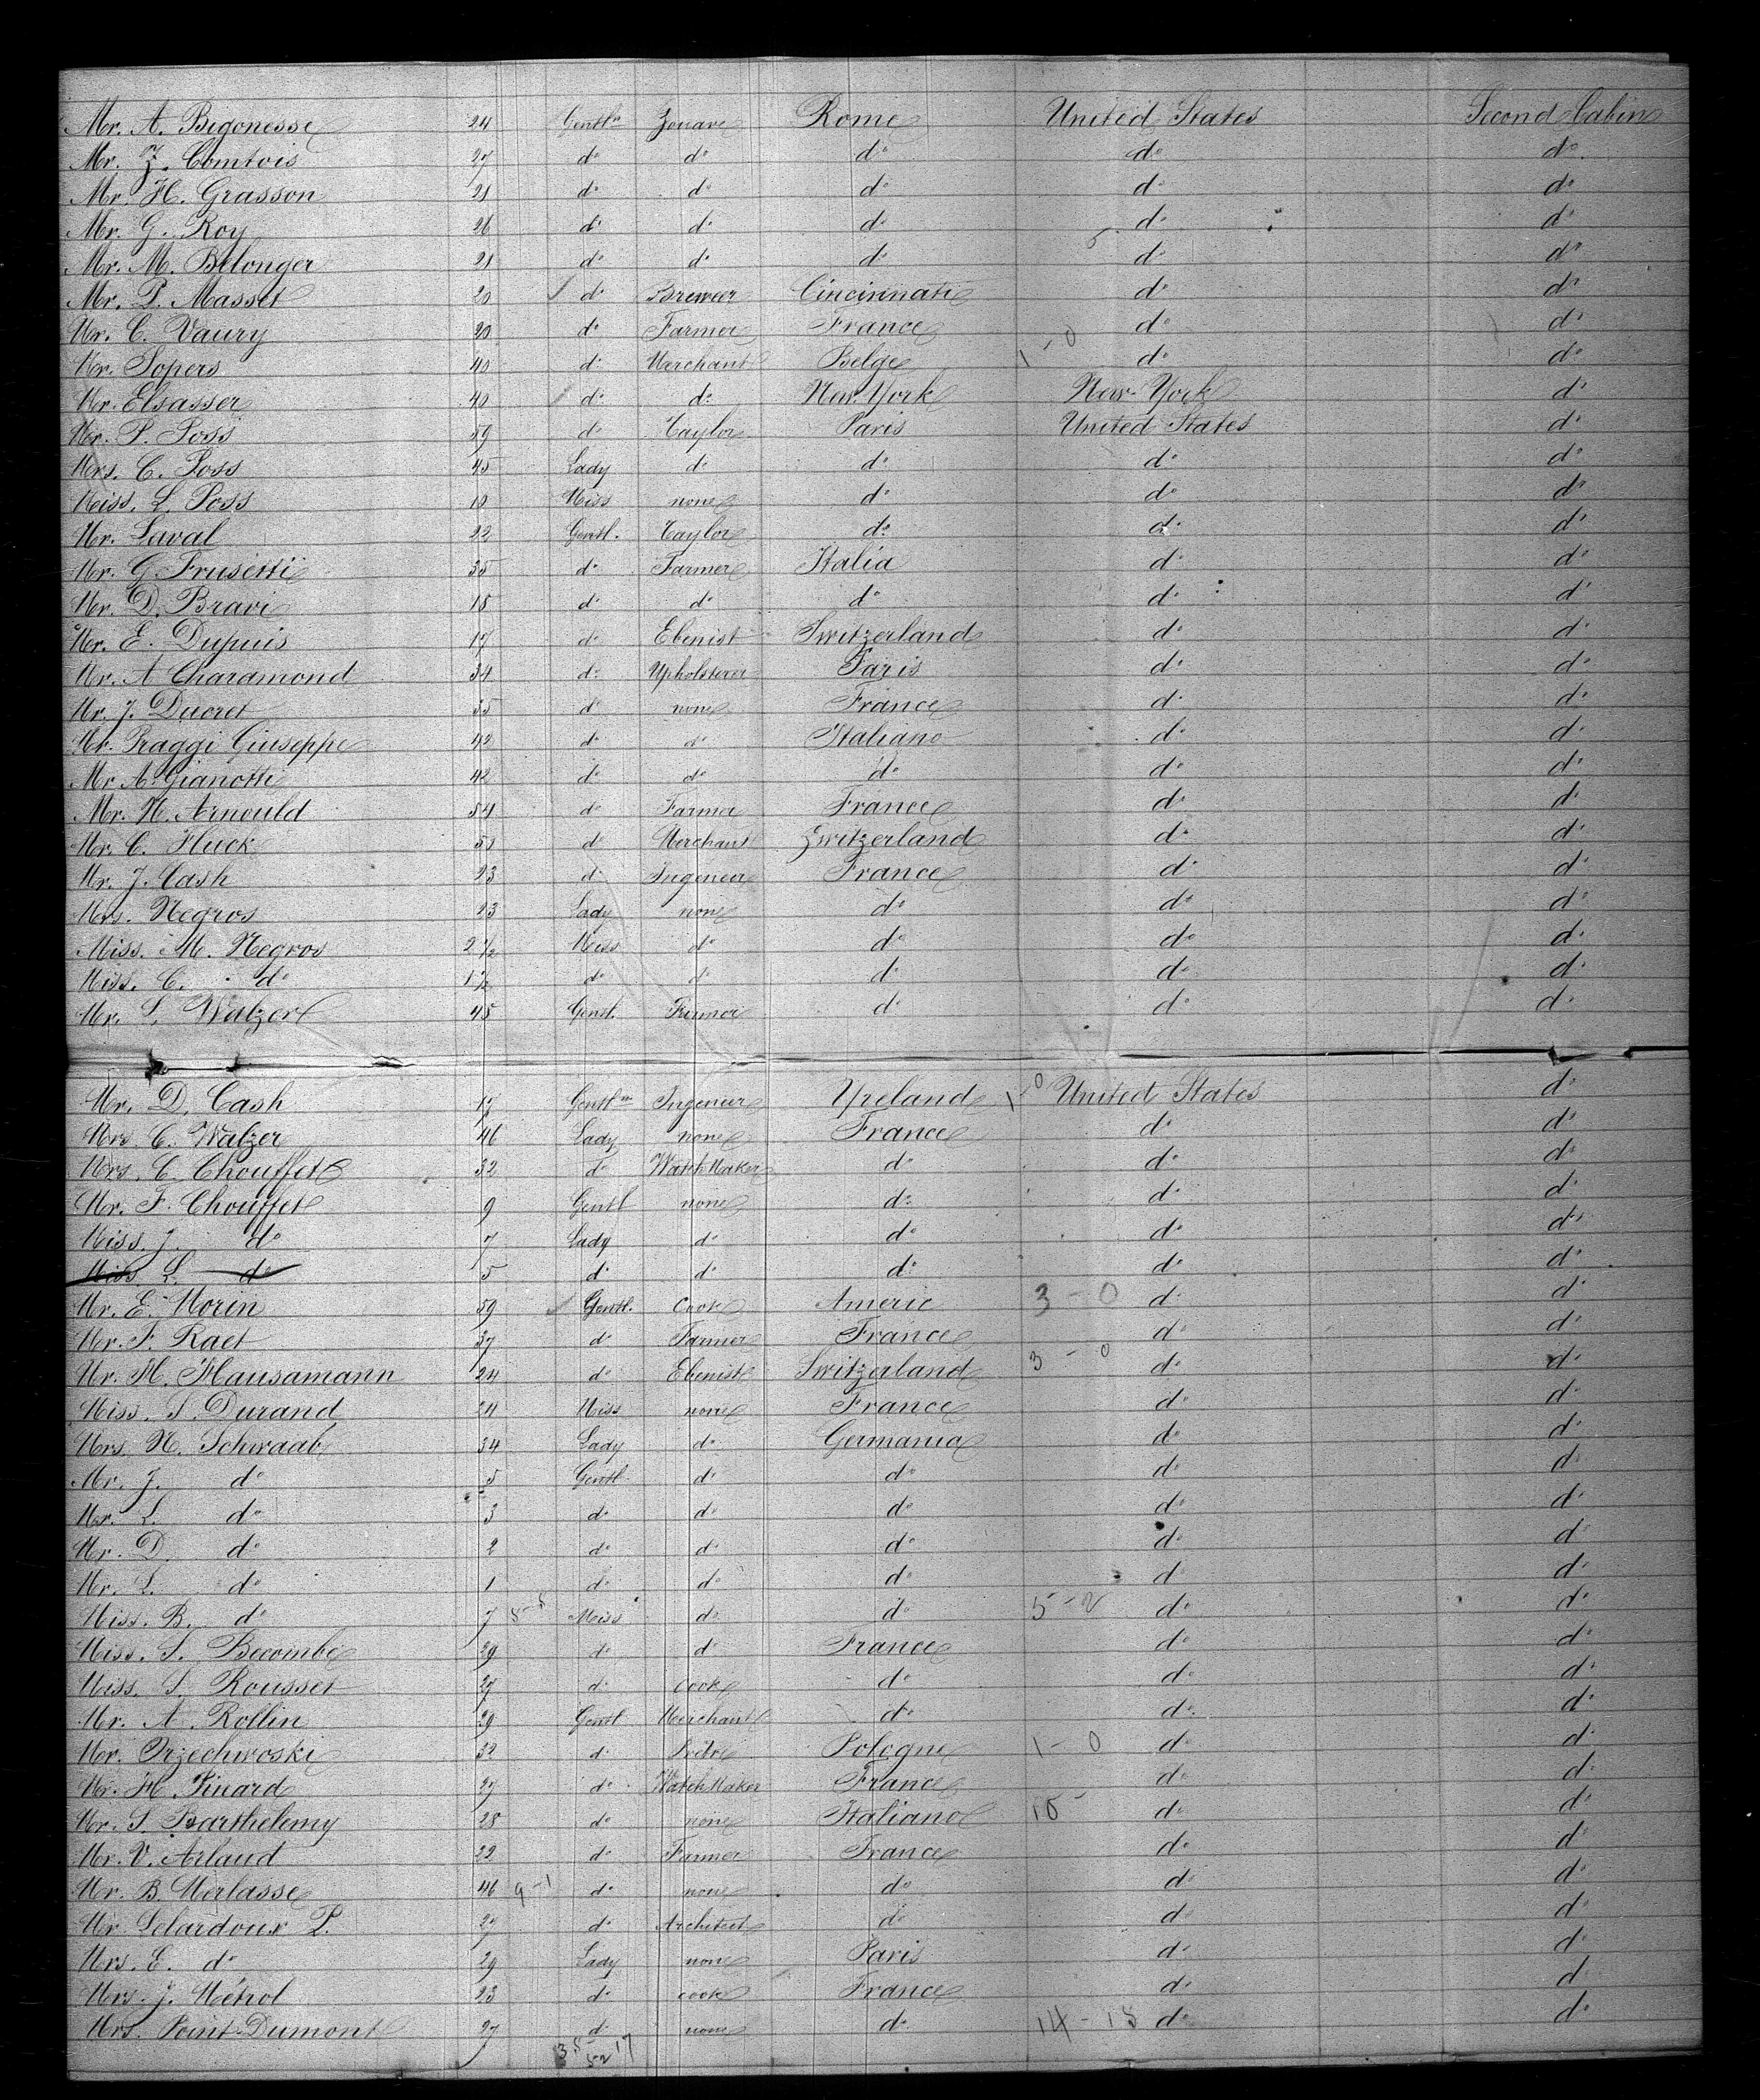 Mr. A. Bigonesse 24 Gentln Zouave Rome United States Second Cabin
Mr. Z. Comtois 27 do do do do do
Mr. H. Grasson 21 do do do do do
Mr. G. Roy 26 do do do do do
Mr. M. Bélonger 21 do do do do do
Mr. P. Masset 20 do Brewer Cincinnati do do
Mr. C. Vaury 20 do Farmer France do do
Mr. Sopers 40 do Merchant Belge 1-0 do do
Mr. Elsasser 40 do do New York New-York do
Mr. P. Poss 59 do Taylor Paris United States do
Mrs. C. Poss 45 Lady do do do do
Miss. L. Poss 10 Miss none do do do
Mr. Laval 22 Gentl. Taylor do do do
Mr. G. Frusetti 35 do Farmer Italia do do
Mr. D. Bravi 18 do do do do do
Mr. E. Dupuis 17 do Ebenist Switzerland do do
Mr. A Charamond 34 do Upholsterer Paris do do
Mr. J. Ducret 35 do none France do do
Mr. Praggi Giuseppe 42 do do Italiano do do
Mr A. Gianotti 42 do do do do do
Mr. N. Arnould 54 do Farmer France do do
Mr. C. Fluck 51 do Merchant Zwitzerland do do
Mr. J. Cash 23 do Ingeneer France do do
Mrs. Negros 23 Lady none do do do
Miss. M. Negros 2 1/2 Miss do do do do
Miss. C. do 1 1/2 do do do do do
Mr. L. Walzer 45 Gentl. Farmer do do do
Mr. D. Cash 17 Gentlm Ingeneer Yreland 1 0 United States do
Mrs C. Walzer 46 Lady none France do do
Mrs. C. Chouffet 32 do Watch Maker do do do
Mr. F. Chouffet 9 Gentl none do do do
Miss. J. do 7 Lady do do do do
Miss. L. do 5 do do do do do
Mr. E. Morin 59 Gentl. Cook Americ 3-0 do do
Mr. F. Raet 37 do Farmer France do do
Mr. H. Hausamann 24 do Ebenist Switzerland 3-0 do do
Miss. S. Durand 24 Miss none France do do
Mrs. N. Schwaab 34 Lady do Germania do do
Mr. J. do 5 Gentl do do do do
Mr. L. do 3 do do do do do
Mr. D. do 2 do do do do do
Mr. L. do 1 do do do do do
Miss. B. do 7 Miss do do 5-2 do do
Miss. S. Becombe 29 do do France do do
Miss. S. Rousset 27 do Cook do do do
Mr. A. Rollin 29 Gentl Merchant do do do
Mr. Orzechwoski 32 do Pologne 1-0 do do
Mr. H. Pinard 27 do Watch Maker France do do
Mr. S. Barthelemy 28 do none Italiano do do
Mr. V. Arlaud 22 do Farmer France do do
Mr. B. Merlasse 46 9-1 do none do do do
Mr Lelardoux P. 27 do Architect do do do
Mrs. E. do 29 Lady none Paris do do
Mrs. J. Métrol 23 do cook France do do
Mrs. Point-Dumont 27 do none do 14-18 do do
35 17
52